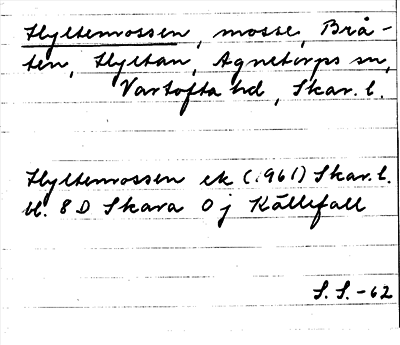 Hyltenmossen, mosse, Brå-
ten, Hyltan, Agnetorps sn,
Vartofta hd, Skar. l.
Hyltenmossen ek (1961) Skar. l.
bl. 8 D Skara 0 j Källefall
S. S. -62